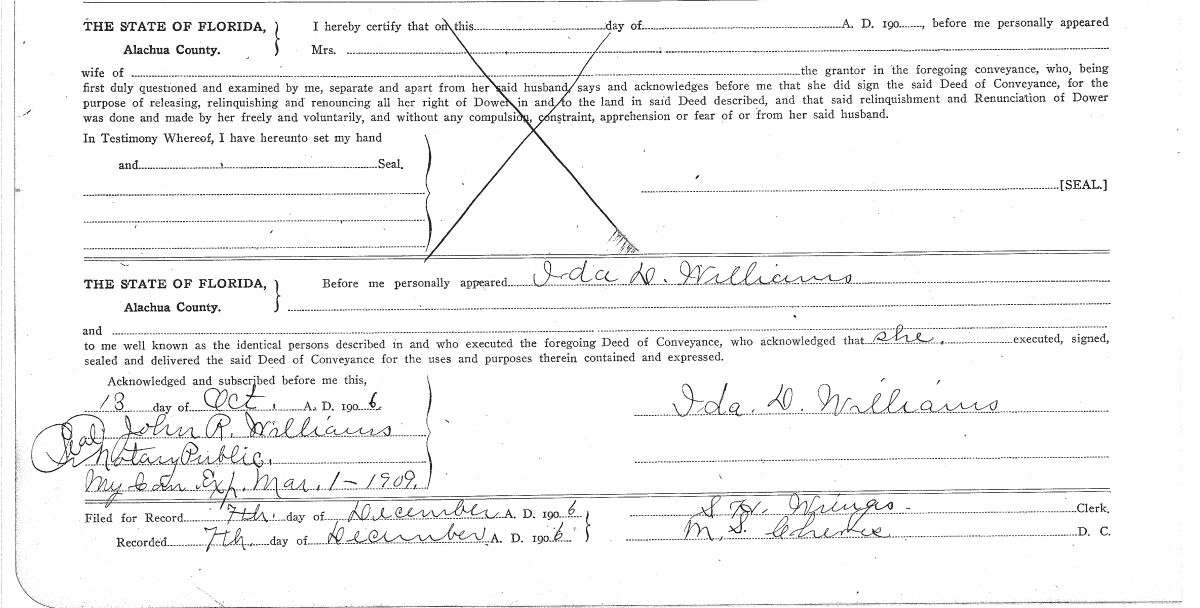 THE STATE OF FLORIDA, } I hereby certify that on this............day of............A. D. 190......, before me personally appeared
Alachua County. Mrs. ............
wife of ............the grantor in the foregoing conveyance, who, being
first duly questioned and examined by me, separate and apart from her said husband, says and acknowledges before me that she did sign the said Deed of Conveyance, for the
purpose of releasing, relinquishing and renouncing all her right of Dower in and to the land in said Deed described, and that said relinquishment and Renunciation of Dower
was done and made by her freely and voluntarily, and without any compulsion, constraint, apprehension or fear of or from her said husband.
In Testimony Whereof, I have hereunto set my hand
and............Seal.
[SEAL.]
THE STATE OF FLORIDA, } Before me personally appeared Ida D. Williams
Alachua County.
and ............
to me well known as the identical persons described in and who executed the foregoing Deed of Conveyance, who acknowledged that she. executed, signed,
sealed and delivered the said Deed of Conveyance for the uses and purposes therein contained and expressed.
Acknowledged and subscribed before me this,
13 day of Oct. A. D. 190 6. Ida. D. Williams
(Seal) John R. Williams
Notary Public.
My Com. Exp. Mar. 1 - 1909.
Filed for Record 7th. day of December A. D. 190 6 S. H. Clerk.
Recorded 7th. day of December A. D. 190 6 M. S. D. C.